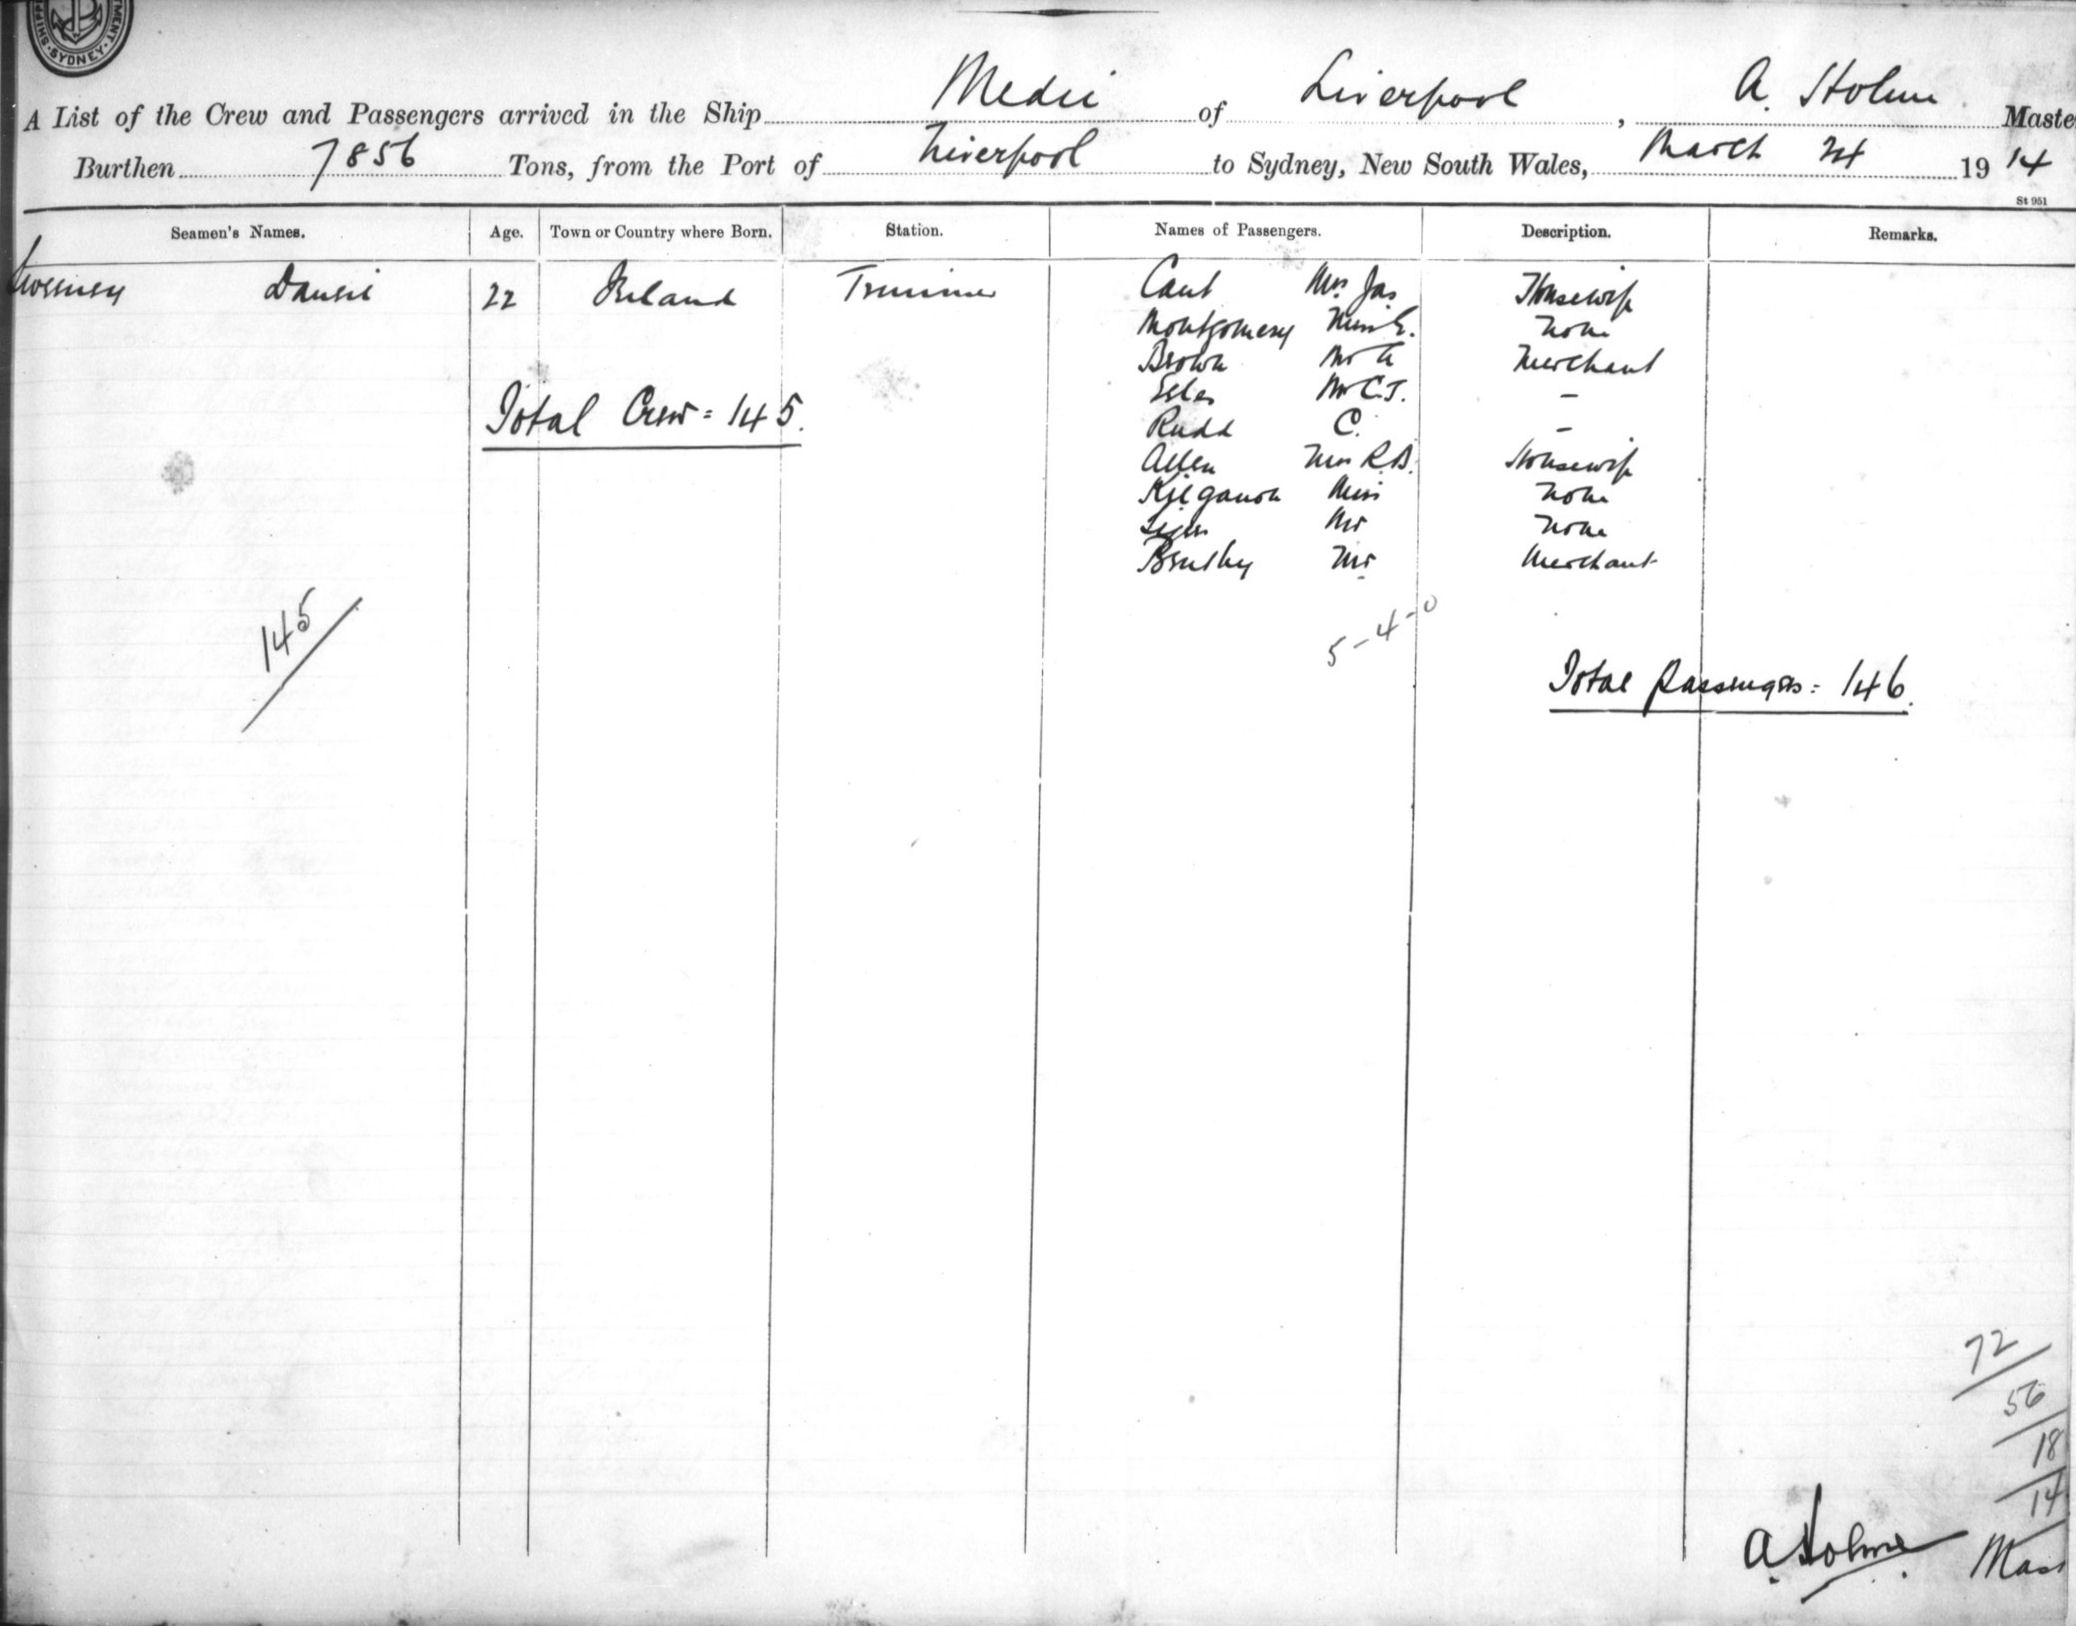 SYDNEY
A List of the Crew and Passengers arrived in the Ship Medic of Liverpool, A. Holme Maste
Burthen 7856 Tons, from the Port of Liverpool to Sydney, New South Wales, March 24 1914
St 951
Seamen's Names. Age. Town or Country where Born. Station. Names of Passengers. Description. Remarks.
Sweeney Daniel 22 Ireland Trimmer Cant Mrs Jas Housewife
Montgomery Miss E. None
Brown Mr A Merchant
Mr C.J. -
Rudd C. -
Allen Mrs R.B. Housewife
Kilganon Miss None
Mr None
Mr Merchant
Total Crew = 145.
145
5-4-0
Total Passengers = 146.
72
56
18
14
A Holme Mas